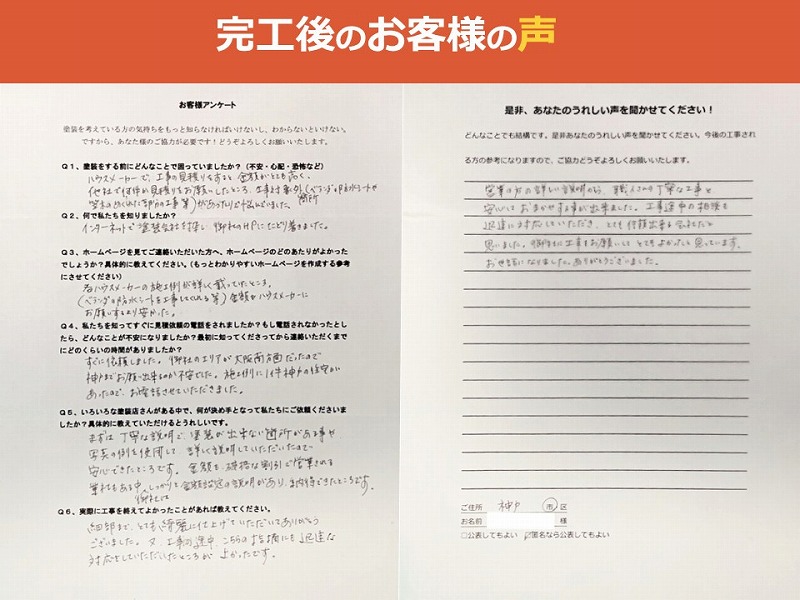 完工後のお客様の声
お客様アンケート
塗装を考えている方の気持ちをもっと知らなければいけないし、わからないといけない。
ですから、あなた様のご協力が必要です！どうぞよろしくお願いいたします。
Q１、塗装をする前にどんなことで困っていましたか？（不安・心配・恐怖など）
ハウスメーカーで、工事の見積りをすると金額がとても高く、
他社で何件か見積りをお願いしたところ、工事対象外（ベランダの防水シートや
箇所
Q２、何で私たちを知りましたか？
インターネットで塗装会社を探し、御社のHPにたどり着きました。
Q３、ホームページを見てご連絡いただいた方へ、ホームページのどのあたりがよかった
でしょうか？具体的に教えてください。（もっとわかりやすいホームページを作成する参考
にさせてください）
各ハウスメーカーの施工例が詳しく載っていたところ。
（ベランダの防水シートを工事してくれる等）金額もハウスメーカーに
お願いするより安かった。
Q４、私たちを知ってすぐに見積依頼の電話をされましたか？もし電話されなかったとし
たら、どんなことが不安になりましたか？最初に知ってくださってから連絡いただくまで
にどのくらいの時間がありましたか？
すぐに依頼しました。御社のエリアが大阪南方面だったので
神戸までお願い出来るのか不安でした。施工例に1件神戸の住宅が
あったので、お電話させていただきました。
Q５、いろいろな塗装店さんがある中で、何が決め手となって私たちにご依頼くださいま
したか？具体的に教えていただけるとうれしいです。
まずは丁寧な説明で、塗装が出来ない箇所がある事や
写真の例を使用して、詳しく説明していただいたので
安心できたところです。金額を破格な割引で営業される
業社もある中、しっかりと金額設定の説明があり、納得できたところです。
御社は
Q６、実際に工事を終えてよかったことがあれば教えてください。
細部まで、とても綺麗に仕上げていただいてありがとう
ございました。又、工事の途中、こちらの指摘にも迅速な
対応をしていただいたところが よかったです。
是非、あなたのうれしい声を聞かせてください！
どんなことでも結構です。是非あなたのうれしい声を聞かせてください。今後の工事され
る方の参考になりますので、ご協力どうぞよろしくお願いいたします。
営業の方の詳しい説明から、職人さんの丁寧な工事と
安心しておまかせする事が出来ました。工事途中の相談も
迅速に対応していただき、とても信頼出来る会社だと
思いました。御社に工事をお願いしてとてもよかったと思っています。
お世話になりました。ありがとうございました。
ご住所 神戸 市・区
お名前 様
□公表してもよい ☑匿名なら公表してもよい